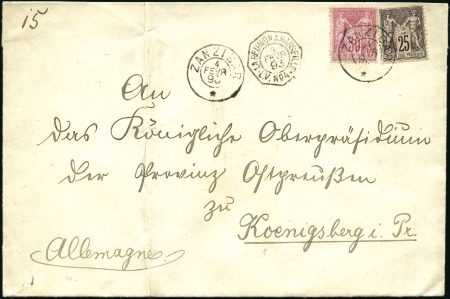 15
ZANZIBAR
4
FEVR
50
25
An
das Königliche Oberpräsidium
der Provinz Ostpreußen
zu
Koenigsberg i. Pr.
Allemagne